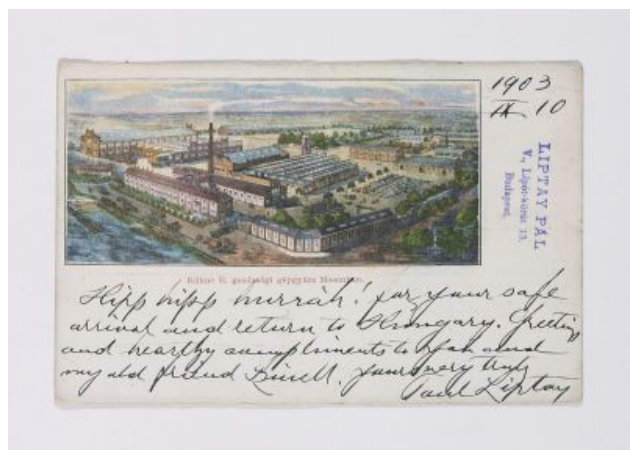 1903
IX 10
LIPTAY PÁL
V., Lipót-körút 13.
Budapest.
Kühne E. gazdasági gépgyára Mosonban.
Hipp hipp hurráh! for your safe
arrival and return to Hungary. Greeting
and hearthy compliments to you and
my old friend yours very truly
Paul Liptay